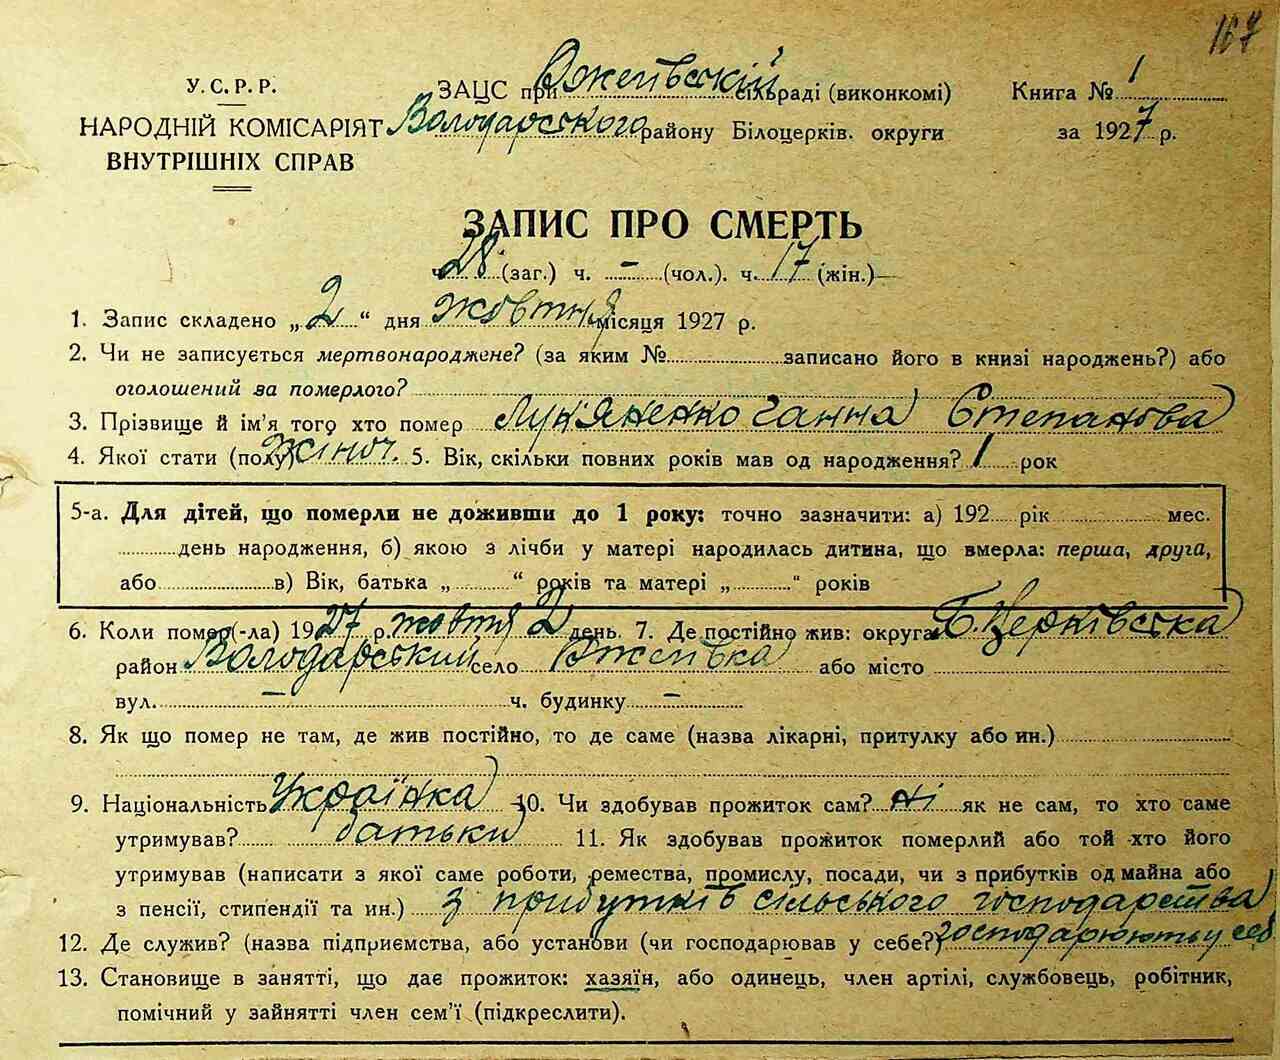 167
У.С.Р.Р.
НАРОДНІЙ КОМІСАРІЯТ
ВНУТРІШНІХ СПРАВ
ЗАЦС при Вжеївській сільраді (виконкомі)
Володарського району Білоцерків. округи
Книга № 1
за 1927 р.
ЗАПИС ПРО СМЕРТЬ
ч. 28 (заг.) ч. – (чол.). ч. 17 (жін.)
1. Запис складено „2“ дня жовтня місяця 1927 р.
2. Чи не записується мертвонароджене? (за яким №...... записано його в книзі народжень?) або
оголошений за померлого?
3. Прізвище й ім'я того хто помер Лук'яненко Ганна Степанова
4. Якої стати (полу) жіноч. 5. Вік, скільки повних років мав од народження? 1 рок
5-а. Для дітей, що померли не доживши до 1 року: точно зазначити: а) 192.... рік ........ мес.
........ день народження, б) якою з лічби у матері народилась дитина, що вмерла: перша, друга,
або ........ в) Вік, батька „........“ років та матері „........“ років
6. Коли помер(-ла) 1927 р. жовтня 2 день. 7. Де постійно жив: округа Б. Церківська
район Володарський село Вжеївка або місто
вул. – ч. будинку –
8. Як що помер не там, де жив постійно, то де саме (назва лікарні, притулку або ин.)
9. Національність Українка 10. Чи здобував прожиток сам? ні як не сам, то хто саме
утримував? батьки 11. Як здобував прожиток померлий або той хто його
утримував (написати з якої саме роботи, ремества, промислу, посади, чи з прибутків од майна або
з пенсії, стипендії та ин.) з прибутків сільського господарства
12. Де служив? (назва підприємства, або установи (чи господарював у себе?) господарюють у себ
13. Становище в занятті, що дає прожиток: хазяїн, або одинець, член артілі, службовець, робітник,
помічний у зайнятті член сем'ї (підкреслити).